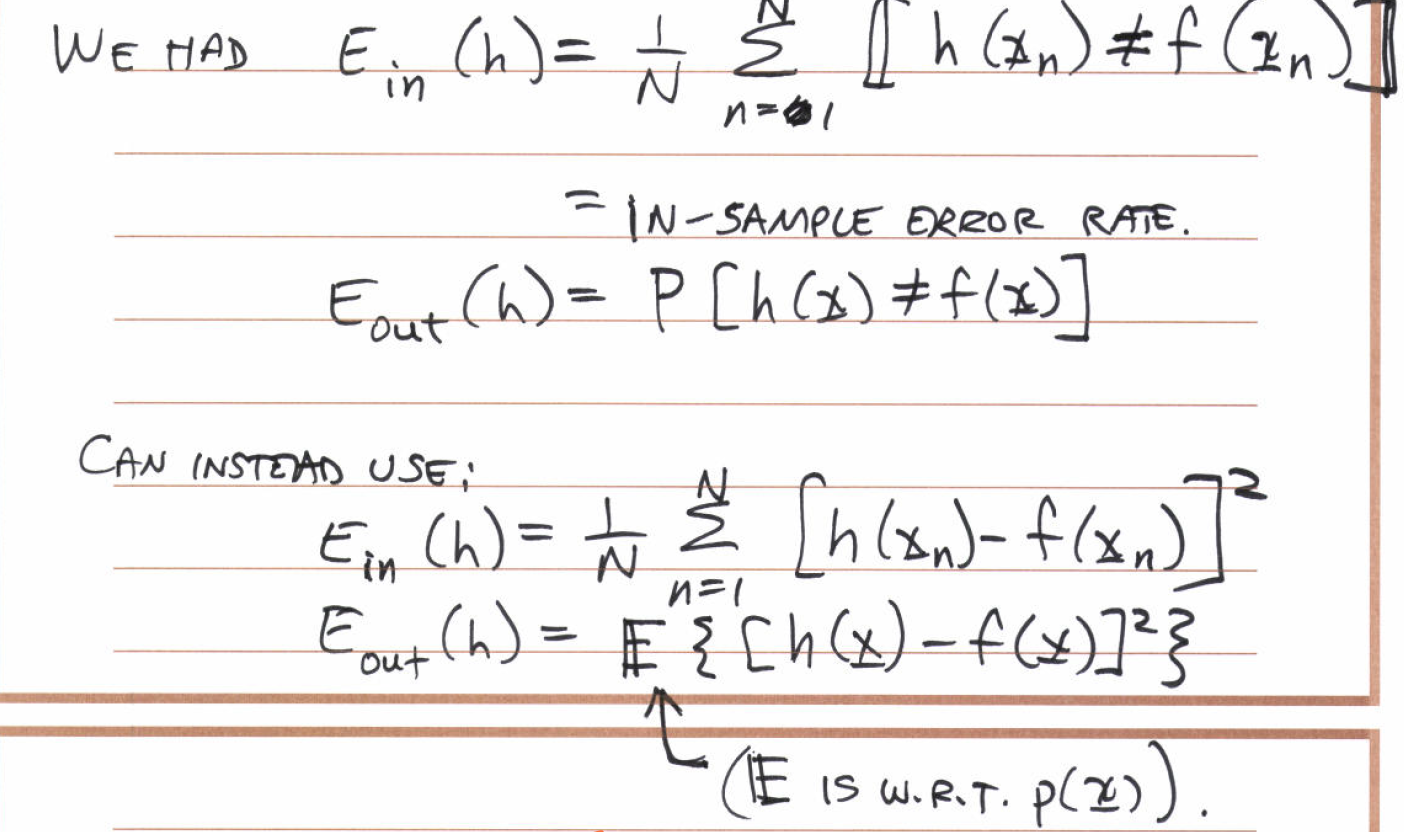 WE HAD E_in (h) = 1/N Σ_{n=1}^{N} ⟦ h (x̲_n) ≠ f (x̲_n) ⟧
= IN-SAMPLE ERROR RATE.
E_out (h) = P [h (x̲) ≠ f(x̲)]
CAN INSTEAD USE:
E_in (h) = 1/N Σ_{n=1}^{N} [h (x̲_n) - f (x̲_n)]²
E_out (h) = 𝔼 { [h (x̲) - f (x̲)]² }
(𝔼 IS W.R.T. p(x̲)).